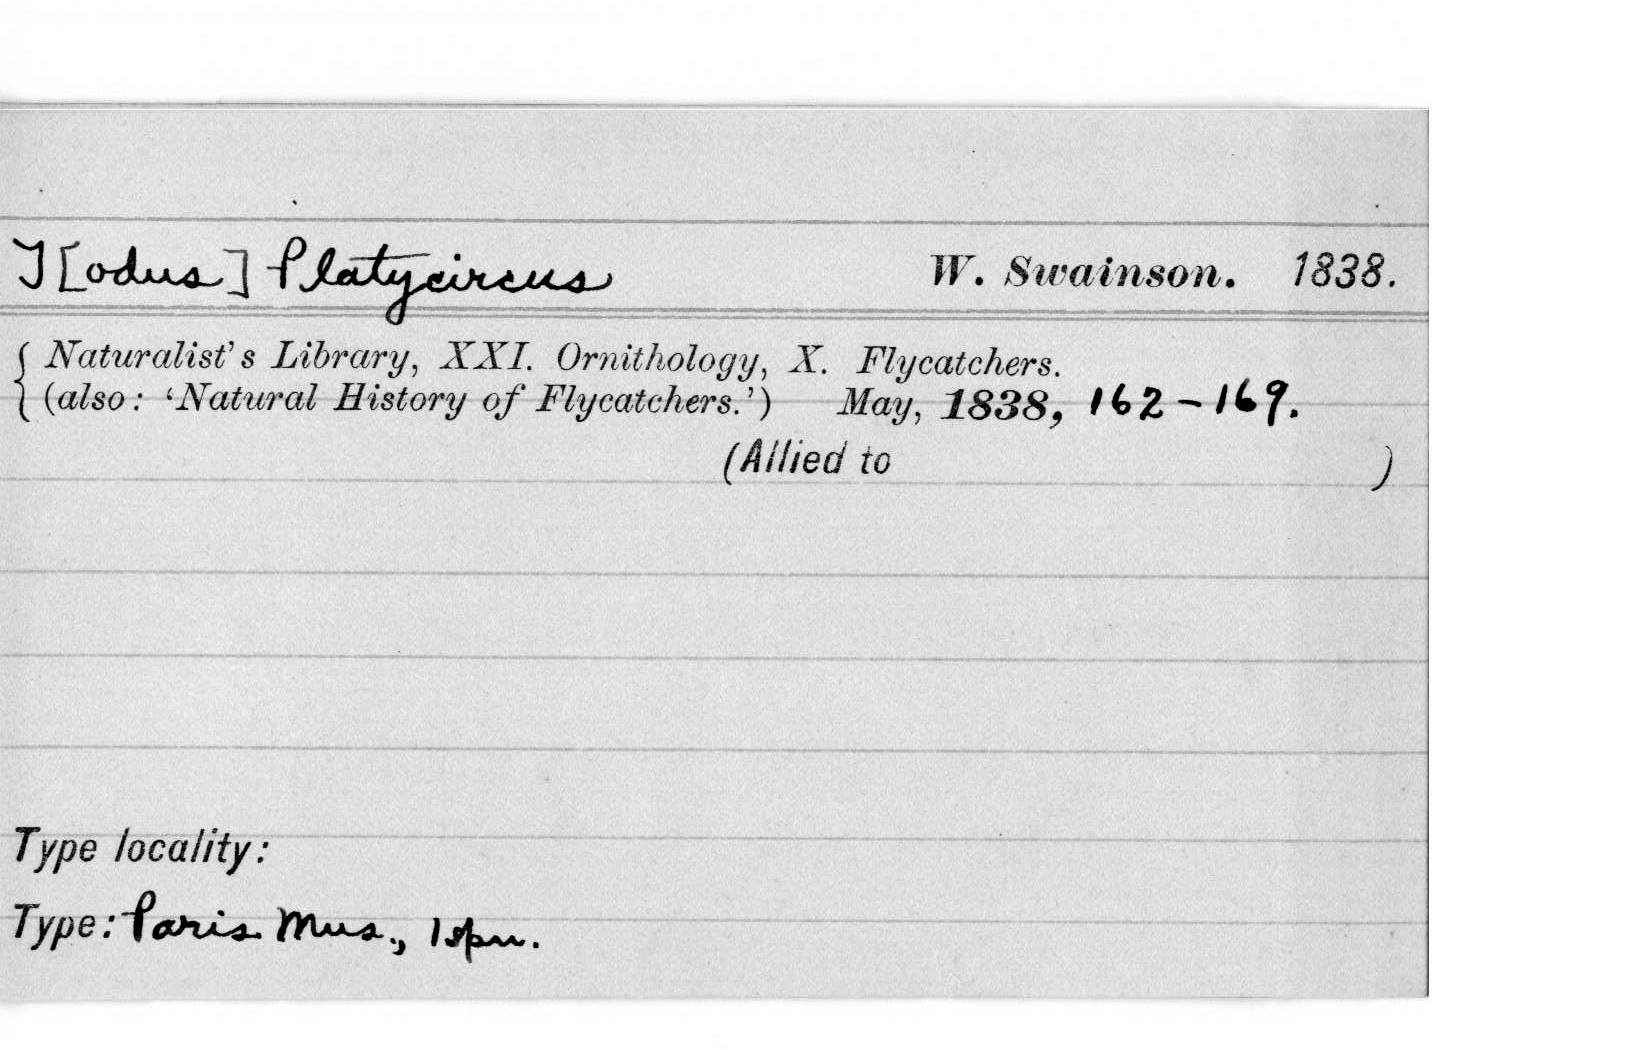 T[odus] Platycircus W. Swainson. 1838.
Naturalist's Library, XXI. Ornithology, X. Flycatchers.
(also: 'Natural History of Flycatchers.') May, 1838, 162-169.
(Allied to )
Type locality:
Type: Paris Mus., 1 spn.